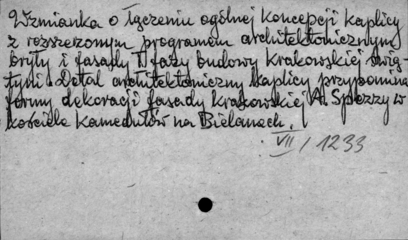 Wzmianka o łączeniu ogólnej koncepcji kaplicy
z rozszerzonym programem architektonicznym
bryły i fasady I fazy budowy krakowskiej świą-
tyni. Detal architektoniczny kaplicy przypomina
formy dekoracji fasady krakowskiej A. Spezzy w
kościele Kamedułów na Bielanach.
VII / 1233